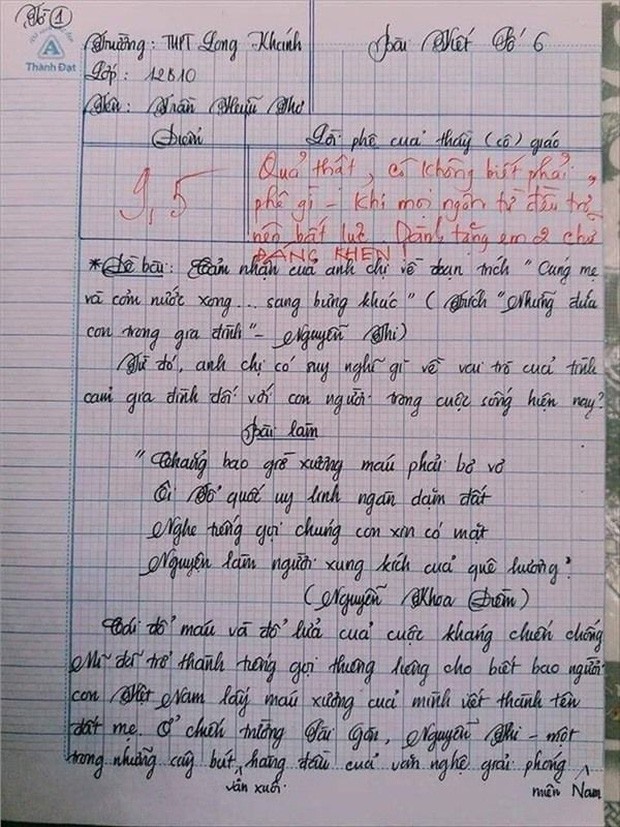 Tờ 1
Thành Đạt
Trường: THPT Long Khánh
Bài Viết Số 6
Lớp: 12B10
Tên: Trần Hữu Thơ
Điểm
Lời phê của thầy (cô) giáo
9,5
Quả thật, cô không biết phải
phê gì - khi mọi ngôn từ đều trở
nên bất lực. Dành tặng em 2 chữ
ĐÁNG KHEN!
*Đề bài: Cảm nhận của anh chị về đoạn trích "Cúng mẹ
và cơm nước xong... sang bưng khác" (Trích "Những đứa
con trong gia đình" - Nguyễn Thi)
Từ đó, anh chị có suy nghĩ gì về vai trò của tình
cảm gia đình đối với con người trong cuộc sống hiện nay?
Bài làm
"Chẳng bao giờ xương máu phải bơ vơ
Ôi Tổ quốc uy linh ngàn dặm đất
Nghe tiếng gọi chúng con xin có mặt
Nguyện làm người xung kích của quê hương"
(Nguyễn Khoa Điềm)
Cái đổ máu và đổ lửa của cuộc kháng chiến chống
Mĩ đã trở thành tiếng gọi thiêng liêng cho biết bao người
con Việt Nam lấy máu xương của mình viết thành tên
đất mẹ. Ở chiến trường Sài Gòn, Nguyễn Thi - một
trong những cây bút văn xuôi hàng đầu của văn nghệ giải phóng miền Nam